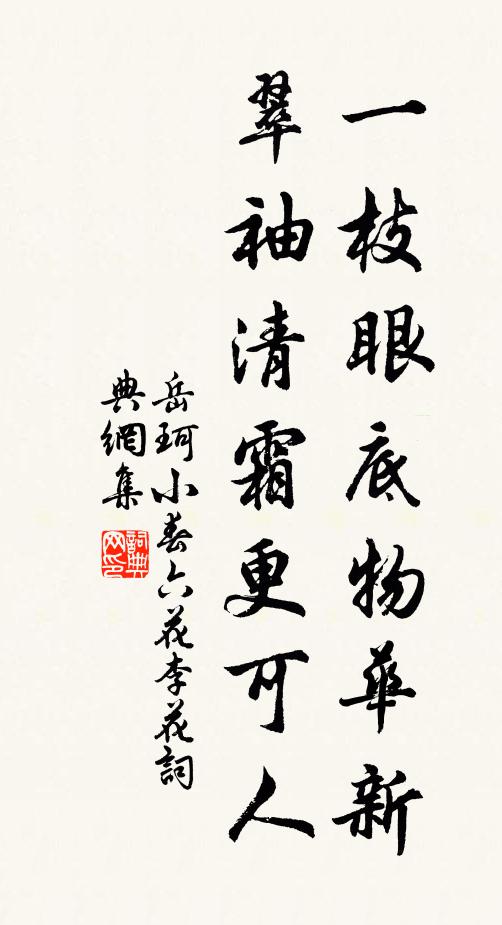 一枝眼底物華新
翠袖清霜更可人
岳珂小春六花李花詞
典網集
詞典
网印